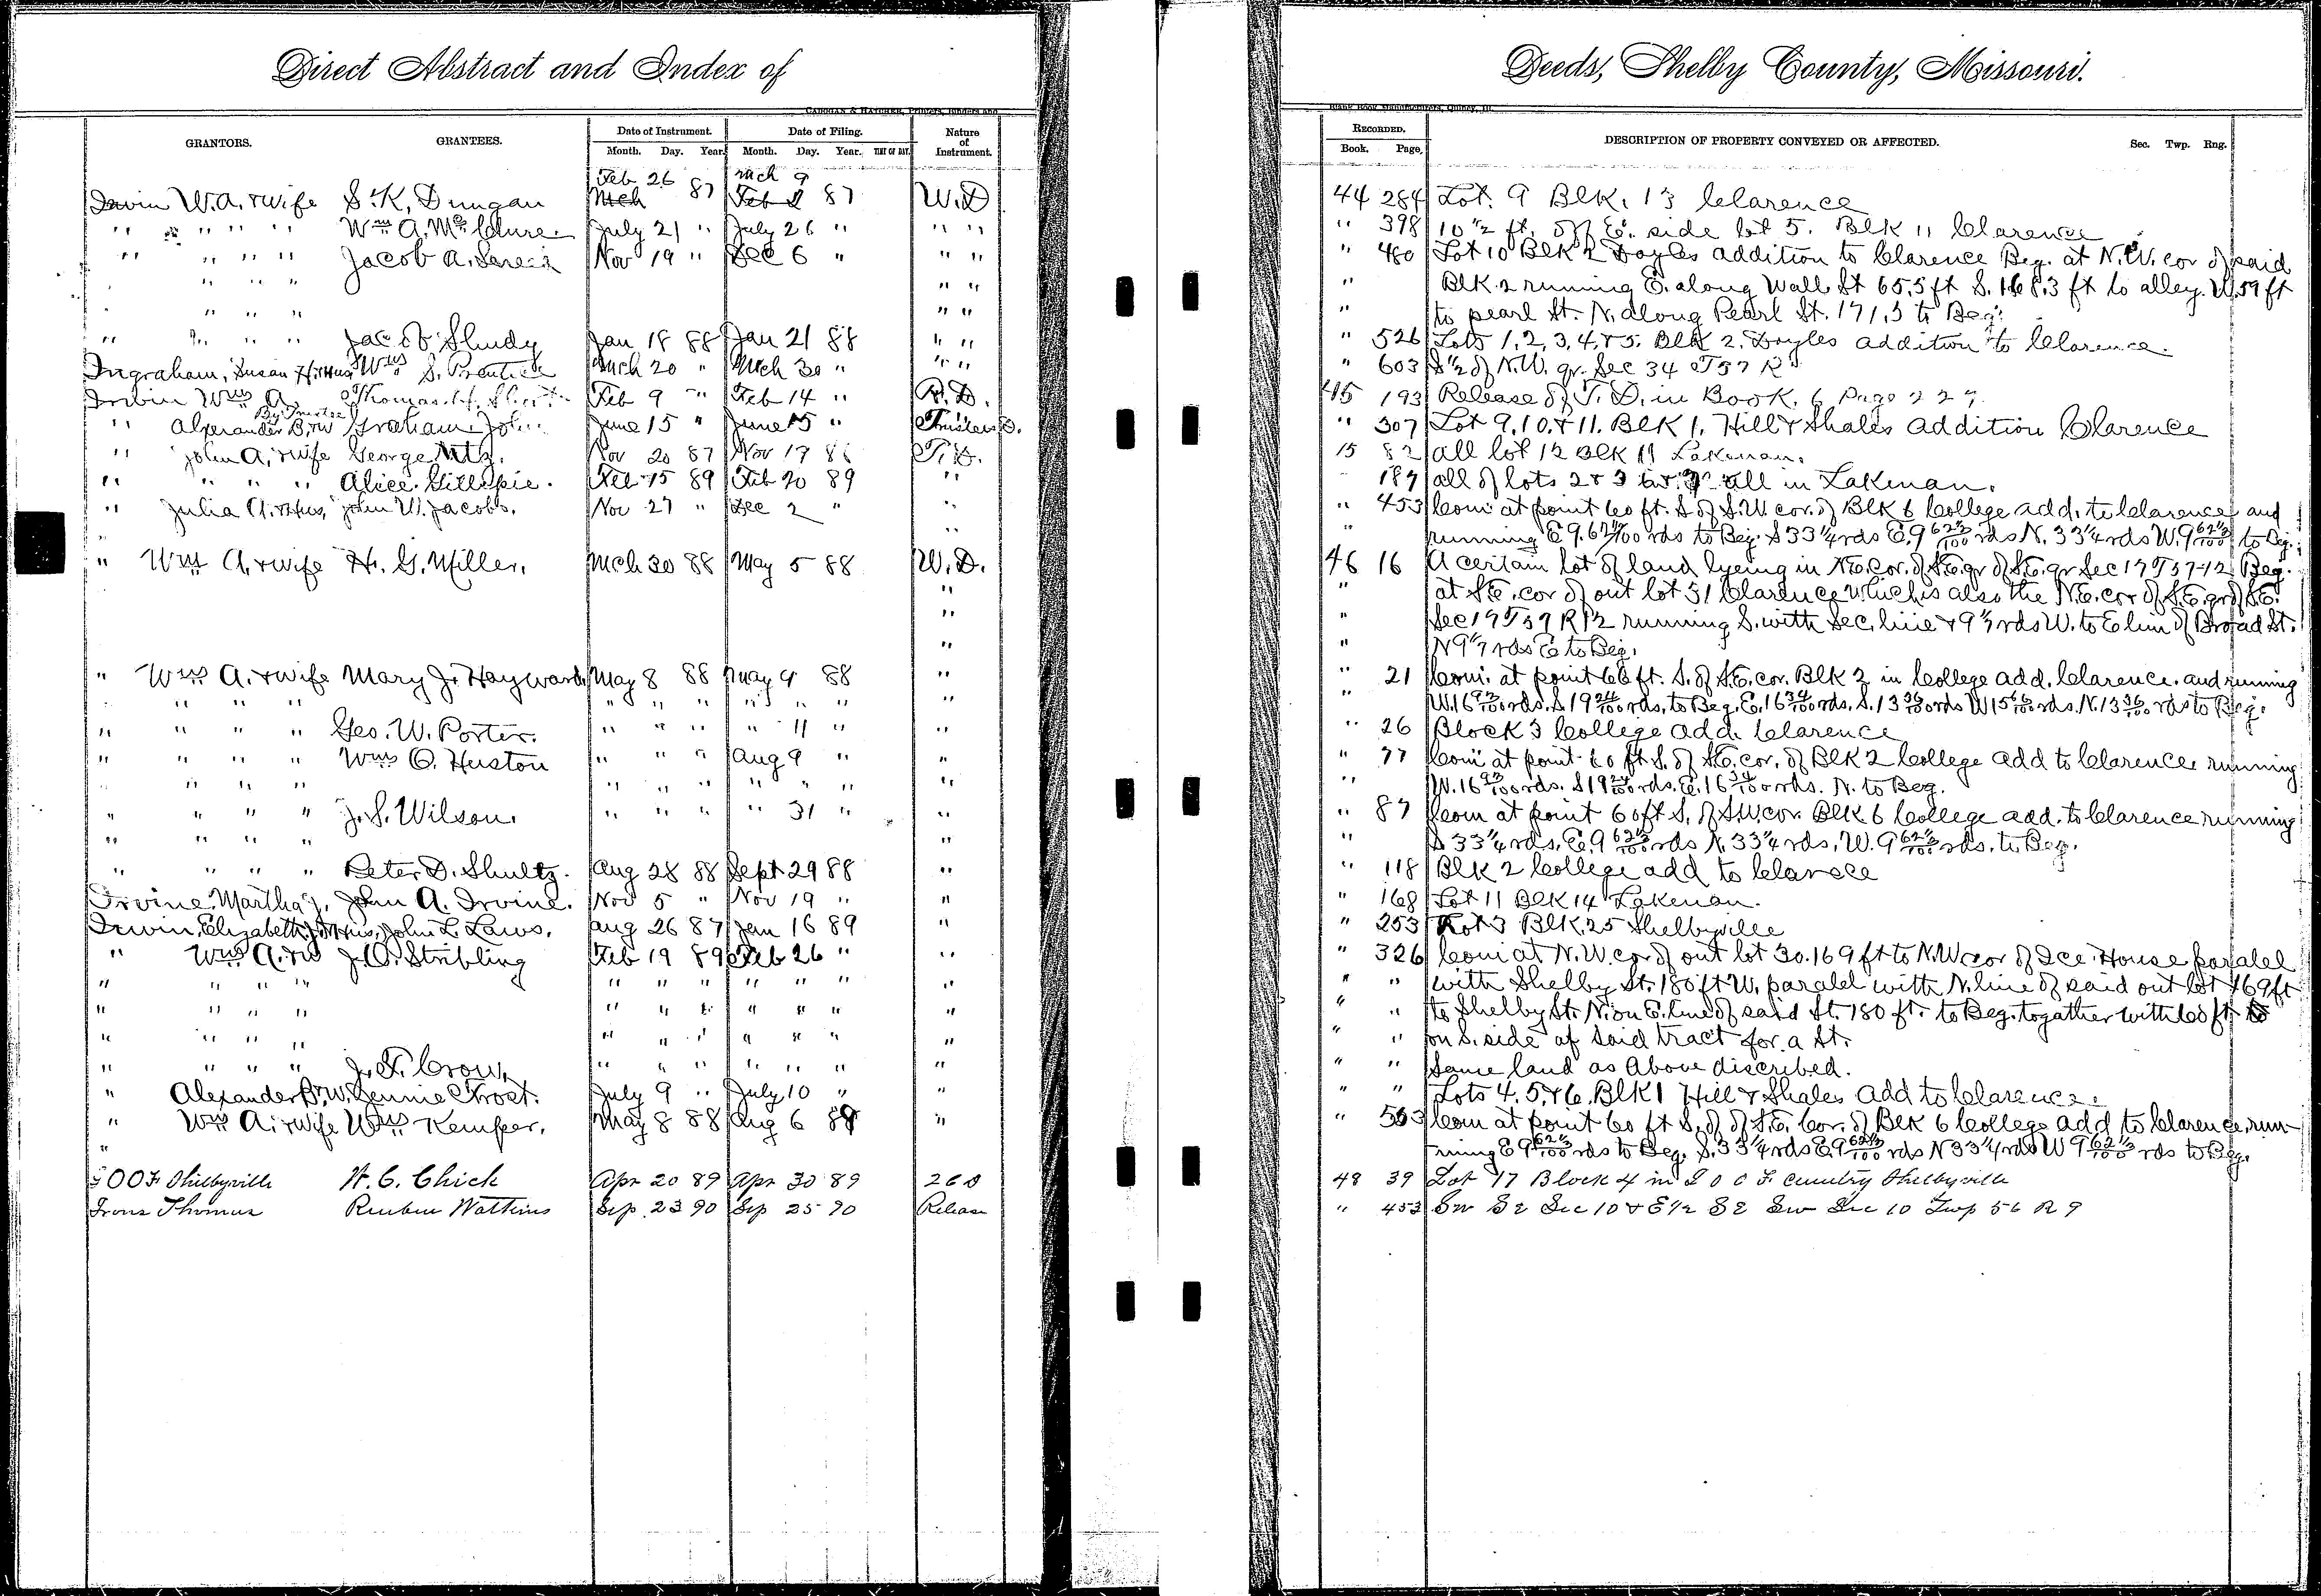 Direct Abstract and Index of Deeds, Shelby County, Missouri.
CADOGAN & HATCHER, Printers, Binders and Blank Book Manufacturers, Quincy, Ill.
GRANTORS. GRANTEES. Date of Instrument. Date of Filing. Nature of Instrument. RECORDED. DESCRIPTION OF PROPERTY CONVEYED OR AFFECTED. Sec. Twp. Rng.
Month. Day. Year. Month. Day. Year. TIME OF DAY. Book. Page.
Feb 26 Mch 9
Irwin W.A. & wife S. K. Dungan Mch 87 Feb 2 87 W.D 44 284 Lot. 9 Blk. 13 Clarence
" " " " " Wm A. McClure. July 21 " July 26 " " " " 398 10 1/2 ft. off E. side lot 5. Blk 11 Clarence
" " " " Jacob A. Nov 19 " Dec 6 " " " " 480 Lot 10 Blk 2 Doyles addition to Clarence Beg. at N.W. cor of said
" " " " " " Blk. 2 running E. along Wall St 65.5 ft S. 168.3 ft to alley. W. 59 ft
" " " " " " to pearl St. N. along Pearl St. 171.3 to Beg.
" " " " Jacob Shudy Jan 18 88 Jan 21 88 " " " 526 Lots 1, 2, 3, 4, & 5. Blk 2. Doyles addition to Clarence.
Ingraham, Susan H. & Hus Wm S. Prentice Mch 20 " Mch 30 " " " " 603 S 1/2 of N.W. qr. Sec 34 T 57 R
Irwin Wm A. Thomas H. Feb 9 " Feb 14 " R.D. 45 193 Release of T. D. in Book. 6 Page 229.
By Trustee
" Alexander B. & W Graham John June 15 " June 15 " Trustees D. " 307 Lot 9, 10, & 11. Blk 1, Hill & Shales Addition Clarence
" John A, & wife George Utz. Nov 20 87 Nov 17 88 T. D. 15 82 all lot 12 Blk 11 Lakenan.
" " " " Alice Gillespie. Feb 15 89 Feb 20 89 " 187 all of lots 2 & 3 all in Lakenan.
" Julia A. & Hus, John W. Jacobs. Nov 27 " Dec 2 " " " 453 Com. at point 60 ft. S of S.W cor. of Blk 6 College add. to Clarence and
" running E 9.62 1/2/100 rds to Beg. S 33 1/4 rds E. 9 62 1/2/100 rds N. 33 1/4 rds W. 9 62 1/2/100 to Beg.
" Wm A. & wife H. G. Miller. Mch 30 88 May 5 88 W. D. 46 16 A certain lot of land lyeing in N.E. cor. of S.E. qr of S.E. qr Sec 17 T 57-12 Beg.
" " at S.E. cor of out lot 31 Clarence which is also the N.E. cor of S.E. qr of S.E.
" " Sec 17 T 57 R 12 running S. with Sec. line & 9 1/7 rds W. to E line of Broad St.
" " N 9 1/7 rds E to Beg.
" Wm A. & wife Mary J. Hayward May 8 88 May 9 88 " " 21 Com. at point 66 ft. S. of S.E. cor. Blk 2 in College add. Clarence. and running
" " " " " " " " " " " " W. 16 92/100 rds. S 19 24/100 rds. to Beg. E. 16 34/100 rds. S. 13 36/100 rds W 15 66/100 rds. N. 13 36/100 rds to Beg.
" " " " Geo. W. Porter. " " " " 11 " " " 26 Block 3 College add. Clarence
" " " " Wm O. Huston " " " Aug 9 " " " 77 Com at point 60 ft S. of S.E. cor. of Blk 2 College add to Clarence running
" " " " " " " " " " " " W. 16 92/100 rds. S 19 24/100 rds. E. 16 34/100 rds. N. to Beg.
" " " " J. S. Wilson. " " " " 31 " " " 87 Com at point 60 ft S. of S.W. cor. Blk 6 College add. to Clarence running
" " " " " " S 33 1/4 rds. E. 9 62 1/2/100 rds N. 33 1/4 rds, W. 9 62 1/2/100 rds. to Beg.
" " " " Peter D. Shultz. Aug 28 88 Sept 29 88 " " 118 Blk 2 College add to Clarece
Irvine, Martha J. John A. Irvine. Nov 5 " Nov 19 " " " 168 Lot 11 Blk 14 Lakenan.
Irwin, Elizabeth J. & Hus, John L. Laws. Aug 26 87 Jan 16 89 " " 253 Lot 3 Blk. 25 Shelbyville
" Wm A. & W J. O. Stribling Feb 19 89 Feb 26 " " " 326 Com at N. W. cor of out lot 30. 169 ft to N.W cor of Ice House paralel
" " " " " " " " " " " " " with Shelby St. 180 ft W. paralel with N. line of said out lot 169 ft
" " " " " " " " " " " " " to Shelby St. N. on E. line of said St. 180 ft. to Beg. togather with 60 ft.
" " " " " " " " " " " " on S. side of said tract for a St.
" " " " J. F. Crow. " " " " " " " " " Same land as Above discribed.
" Alexander B. & W. Jennie C Frost. July 9 " July 10 " " " " Lots 4. 5, & 6. Blk 1 Hill & Shales Add to Clarence.
" Wm A. & wife Wm Kemper. May 8 88 Aug 6 89 " " 563 Com at point 60 ft S. of of S.E. Cor. of Blk 6 College add to Clarence, run-
" ning E 9 62 1/2/100 rds to Beg. S. 33 1/4 rds E. 9 62 1/2/100 rds N 33 1/4 rds W 9 62 1/2/100 rds to Beg.
IOOF Shelbyville W. C. Chick Apr 20 89 Apr 30 89 48 39 Lot 17 Block 4 in I O O F Shelbyville
Irons Thomas Reuben Watkins Sep 23 90 Sep 25 90 Release " 453 Sw Se Sec 10 & E 1/2 SE Sw Sec 10 Twp 56 R 9